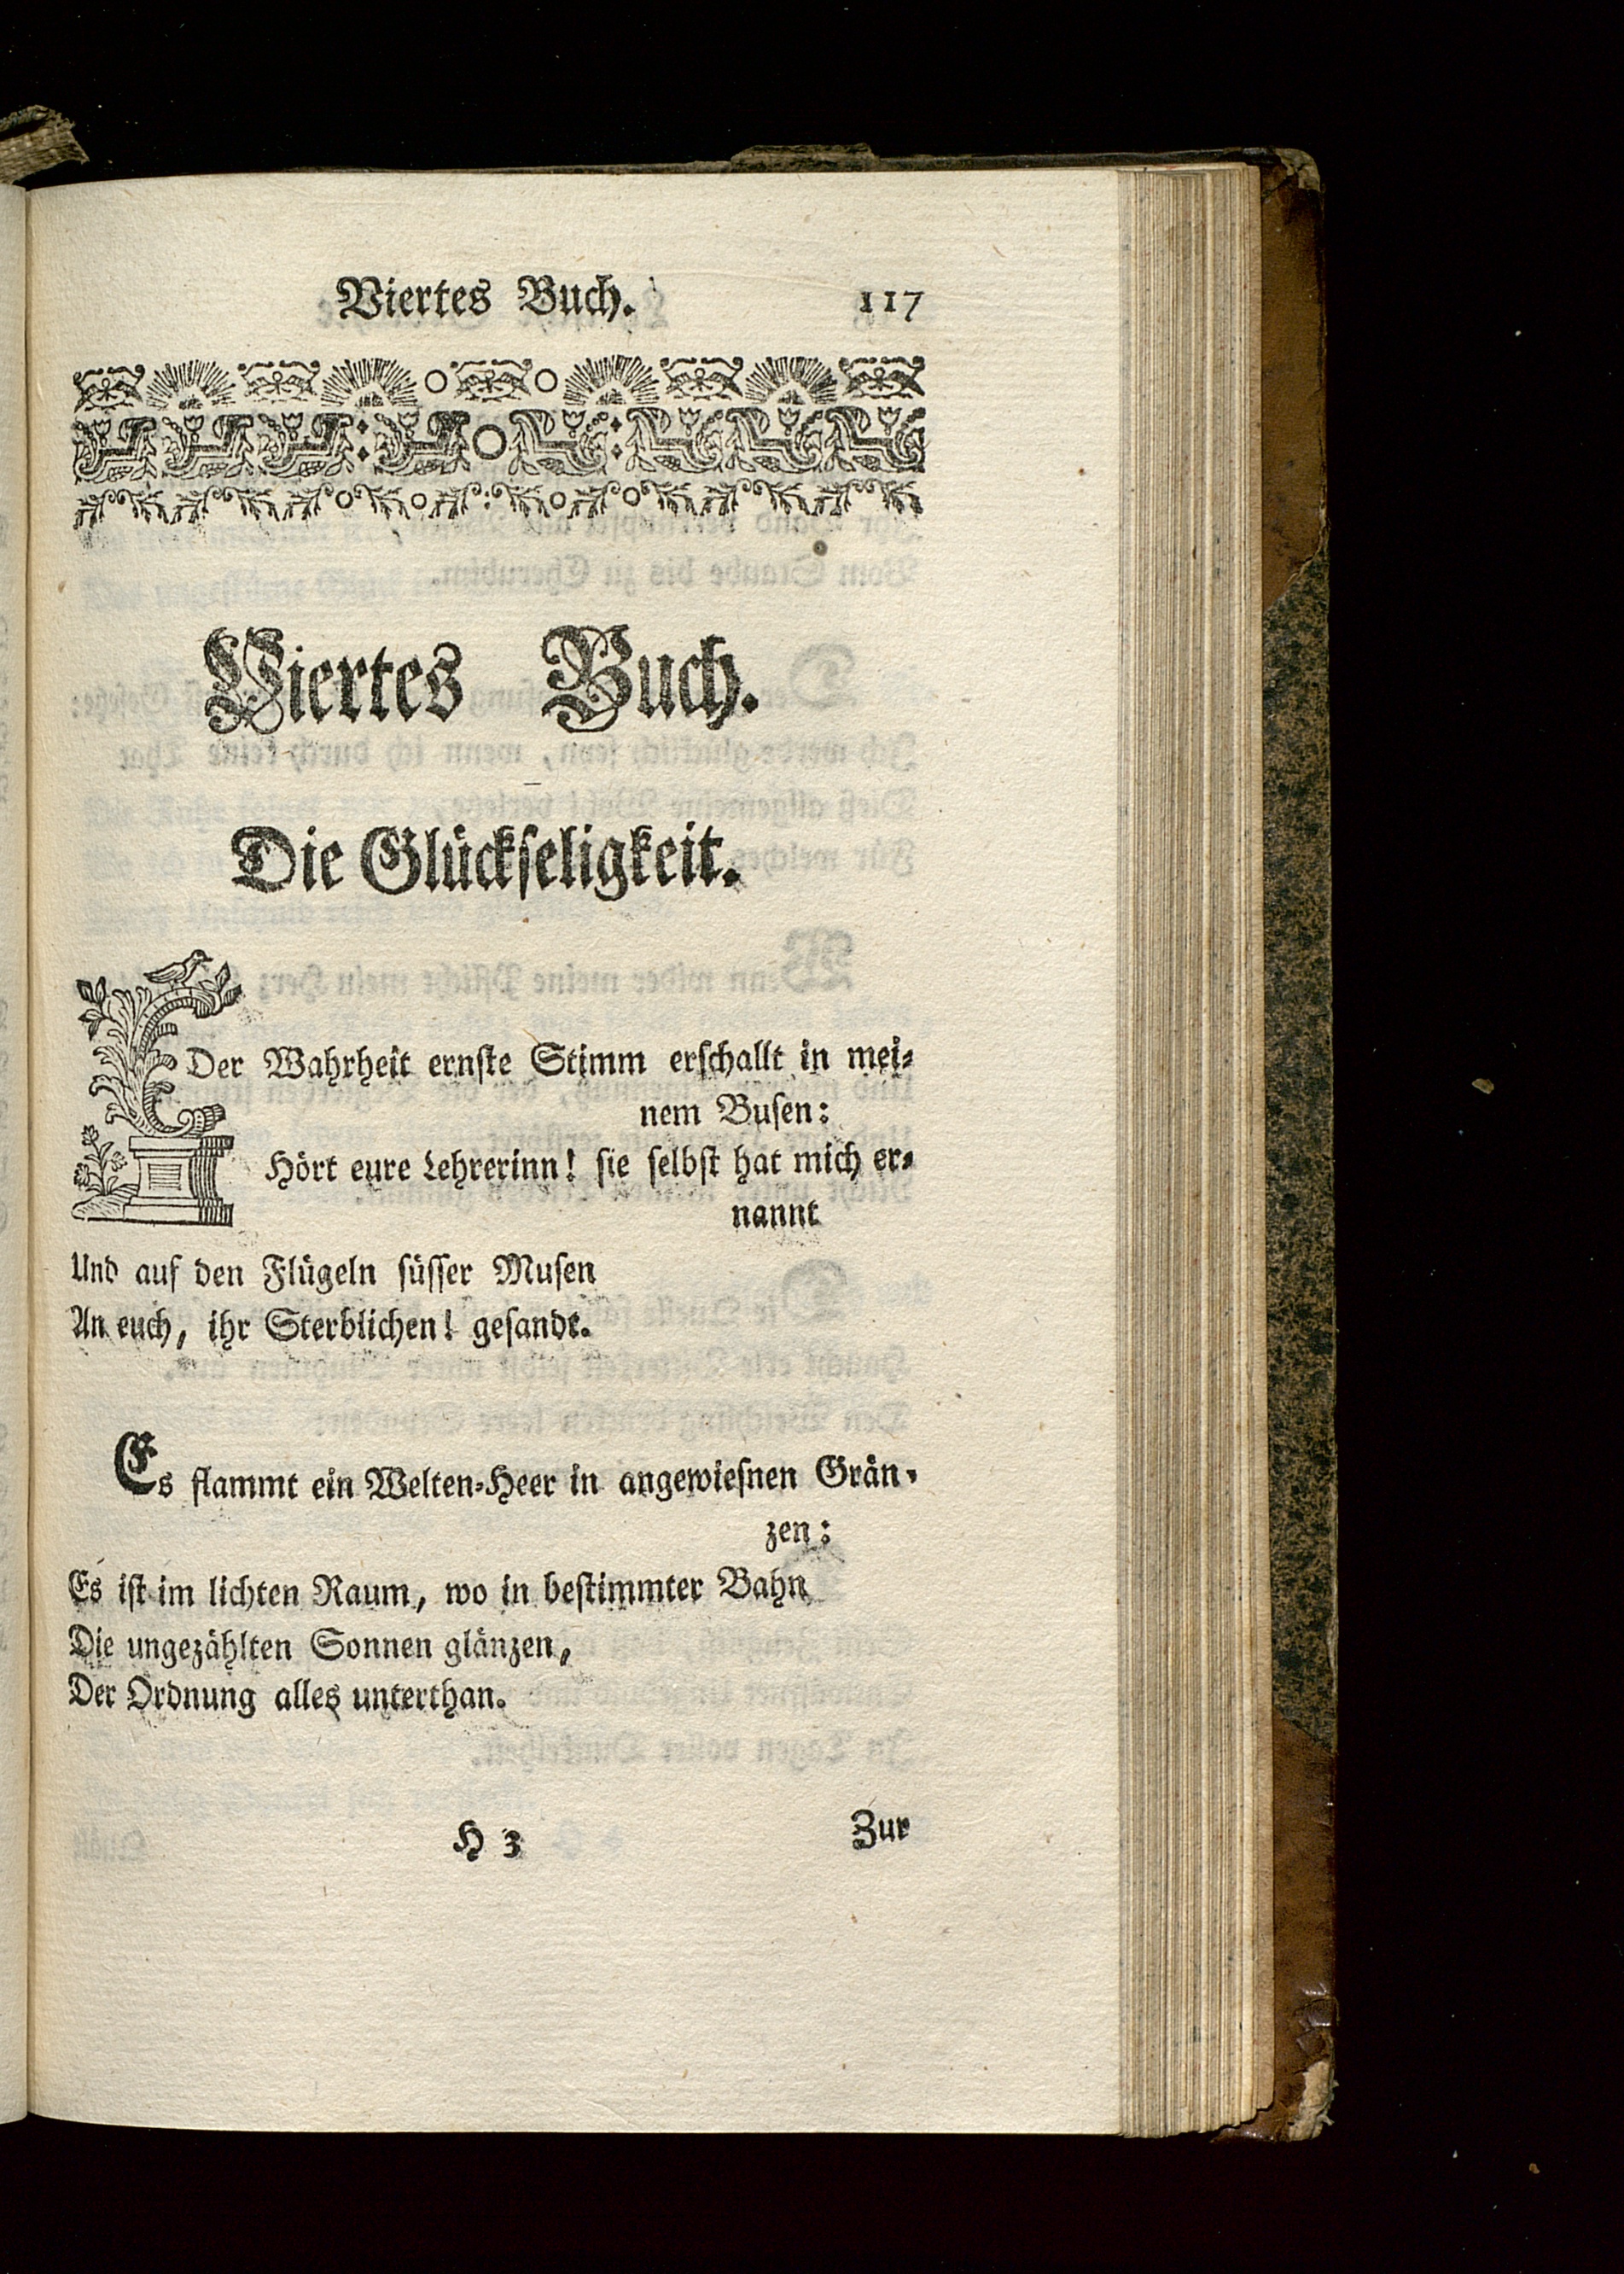 Viertes Buch. 117
Viertes Buch.
Die Glückseligkeit.
Der Wahrheit ernste Stimm erschallt in mei-
nem Busen:
Hört eure Lehrerinn! sie selbst hat mich er-
nannt
Und auf den Flügeln süsser Musen
An euch, ihr Sterblichen! gesandt.
Es flammt ein Welten-Heer in angewiesnen Grän-
zen:
Es ist im lichten Raum, wo in bestimmter Bahn
Die ungezählten Sonnen glänzen,
Der Ordnung alles unterthan.
H 3 Zur